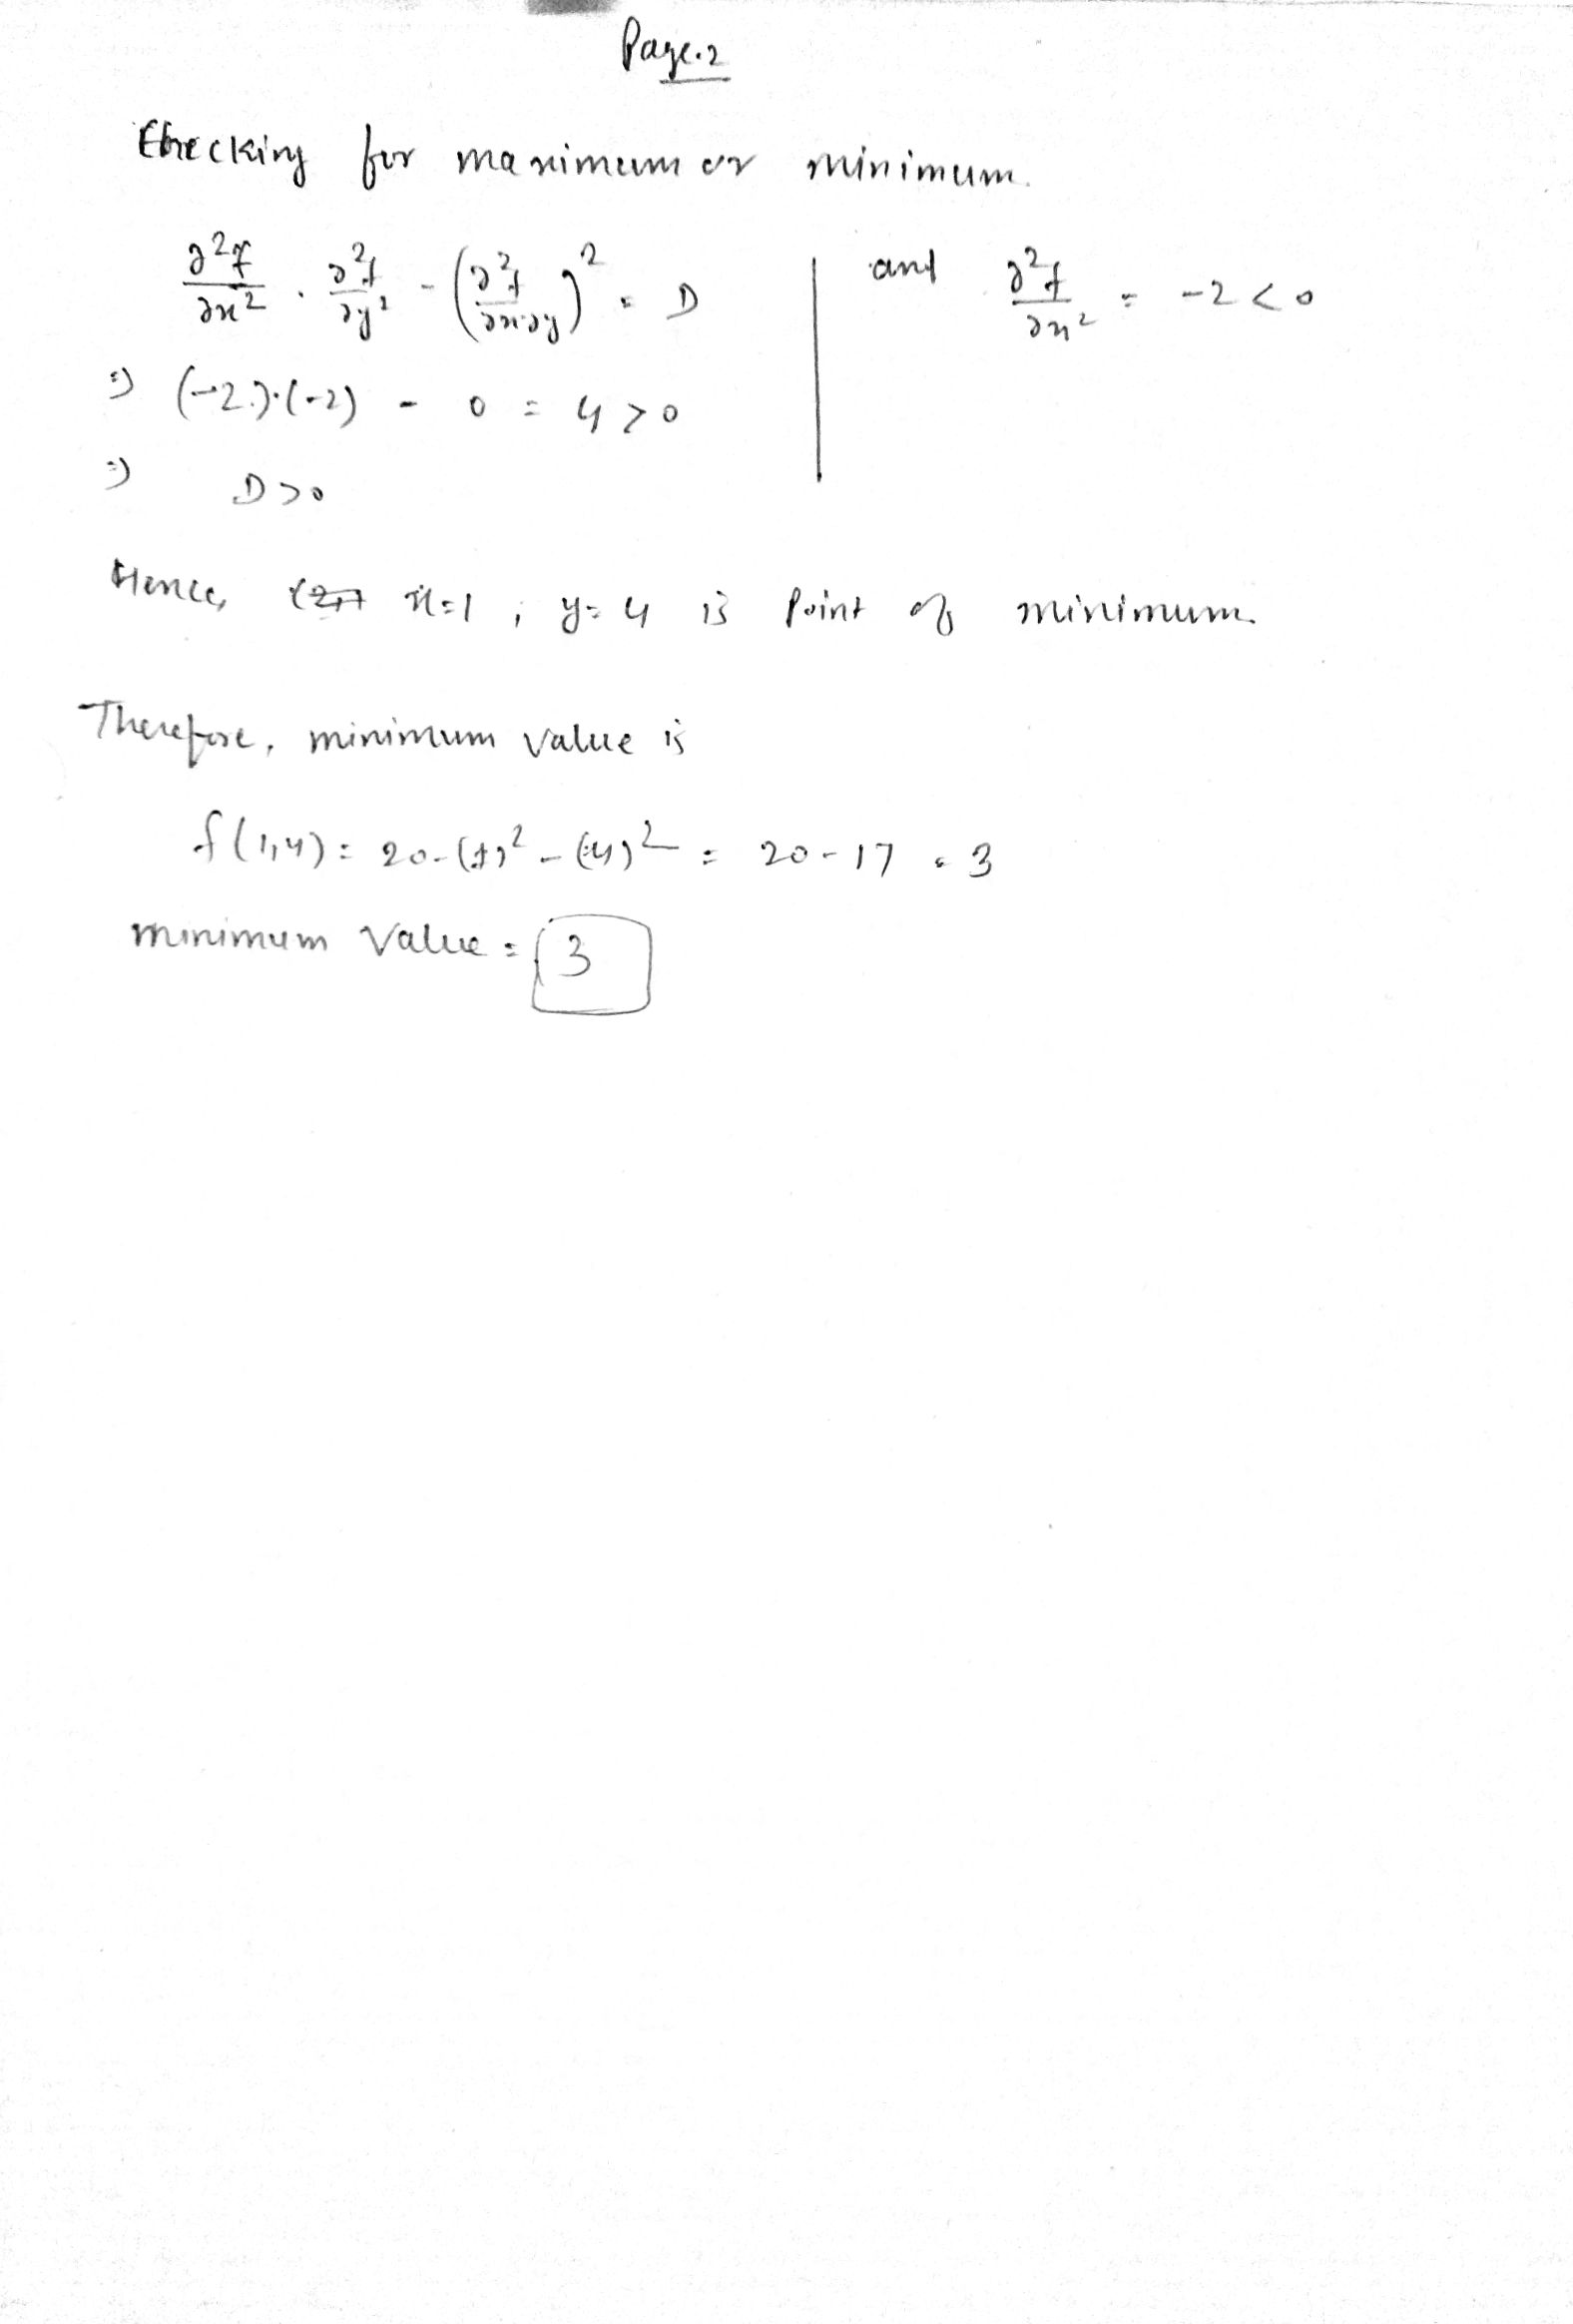 Page.2
Checking for maximum or minimum.
∂²f/∂x² · ∂²f/∂y² - (∂²f/∂x∂y)² = D | and ∂²f/∂x² = -2 < 0
⇒ (-2)·(-2) - 0 = 4 > 0
⇒ D > 0
Hence, x=1, y=4 is point of minimum.
Therefore, minimum value is
f(1,4) = 20-(1)² - (4)² = 20-17 = 3
minimum value = 3